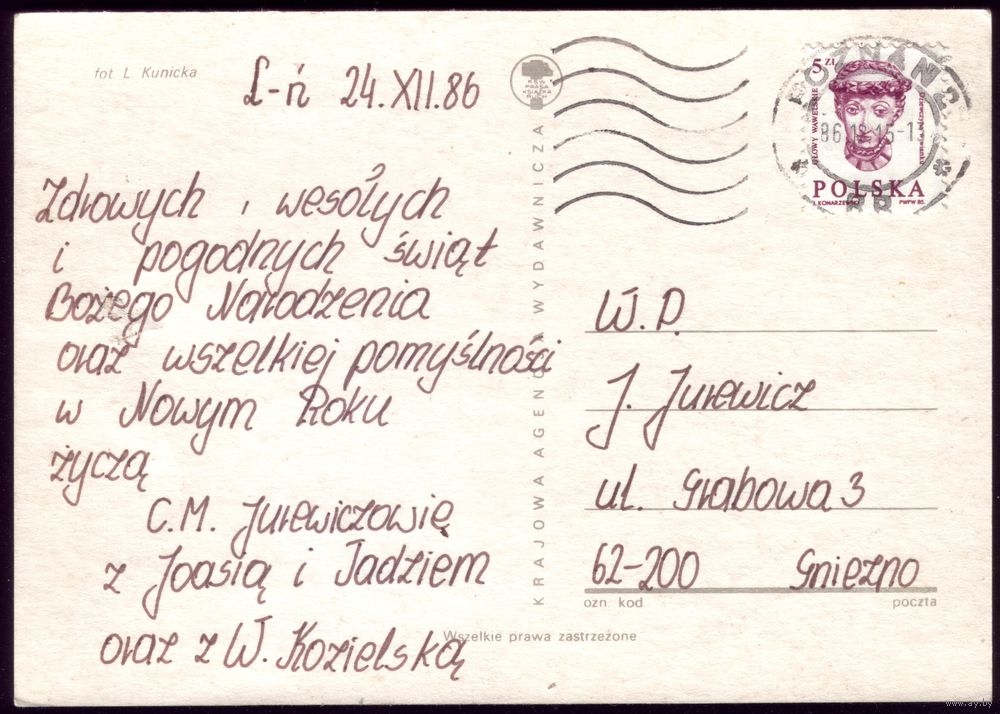 fot. L. Kunicka
L-ń 24.XII.86
Zdrowych, wesołych
i pogodnych świąt
Bożego Narodzenia
oraz wszelkiej pomyślności
w Nowym Roku
życzą
C.M. Jurewiczowię
z Joasią i Tadziem
oraz z W. Kozielską
RSW
PRASA
KSIĄŻKA
RUCH
KRAJOWA AGENCJA WYDAWNICZA
Wszelkie prawa zastrzeżone
5 ZŁ
GŁOWY WAWELSKIE
POLSKA
PWPW 85.
POZNAŃ
W.P.
J. Jurewicz
ul. Grabowa 3
62-200 Gniezno
ozn. kod. poczta
www.ay.by